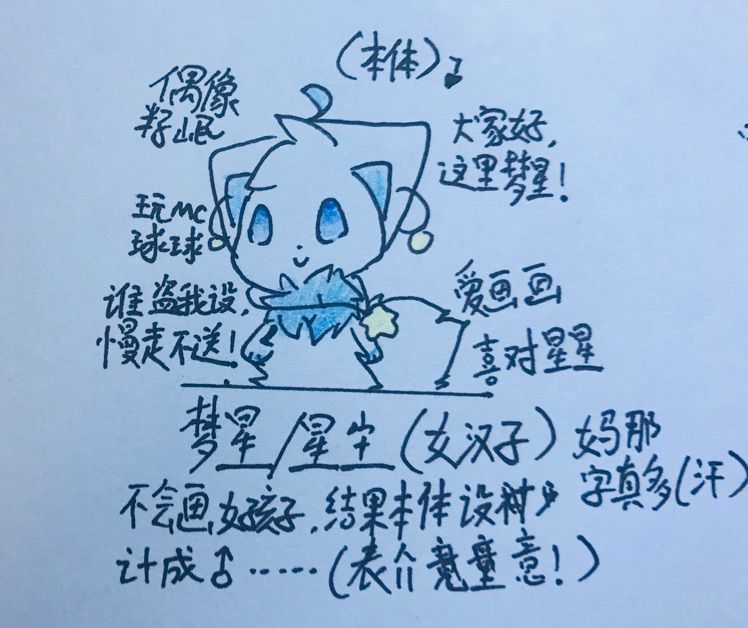 (本体)
偶像
籽岷
大家好,
这里梦星!
玩MC
球球
谁盗我设,
慢走不送!
爱画画
喜对星星
梦星/星 (女汉子)
妈那
字真多(汗)
不会画女孩子,结果本体设
计成♂……(表介意!)